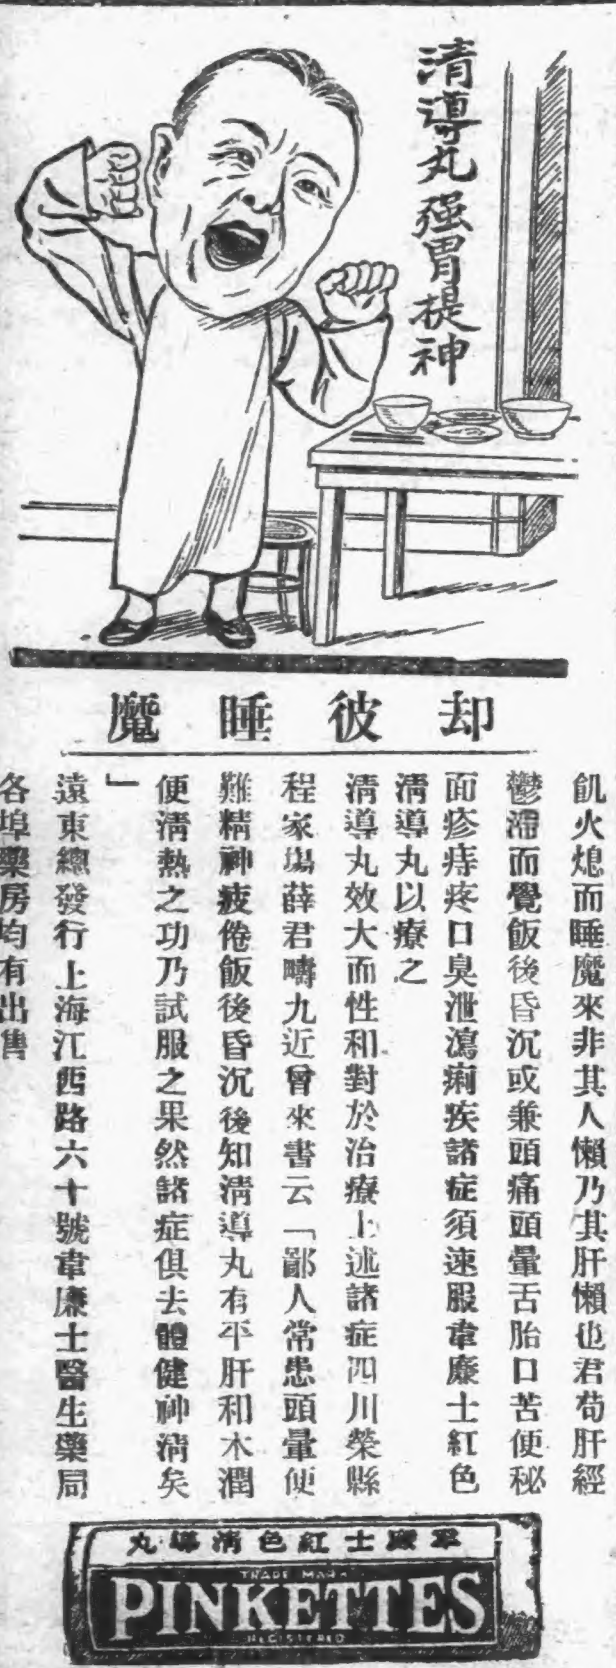 清導丸強胃提神
却彼睡魔
飢火熄而睡魔來非其人懶乃其肝懶也君苟肝經
鬱滯而覺飯後昏沉或兼頭痛頭暈舌胎口苦便秘
面疹痔疼口臭泄瀉痢疾諸症須速服韋廉士紅色
清導丸以療之
清導丸效大而性和對於治療上述諸症四川榮縣
程家場薛君疇九近曾來書云「鄙人常患頭暈便
難精神疲倦飯後昏沉後知清導丸有平肝和木潤
便清熱之功乃試服之果然諸症俱去體健神淸矣
」
遠東總發行上海江西路六十號韋廉士醫生藥局
各埠藥房均有出售
韋廉士紅色清導丸
TRADE MARK
PINKETTES
REGISTERED